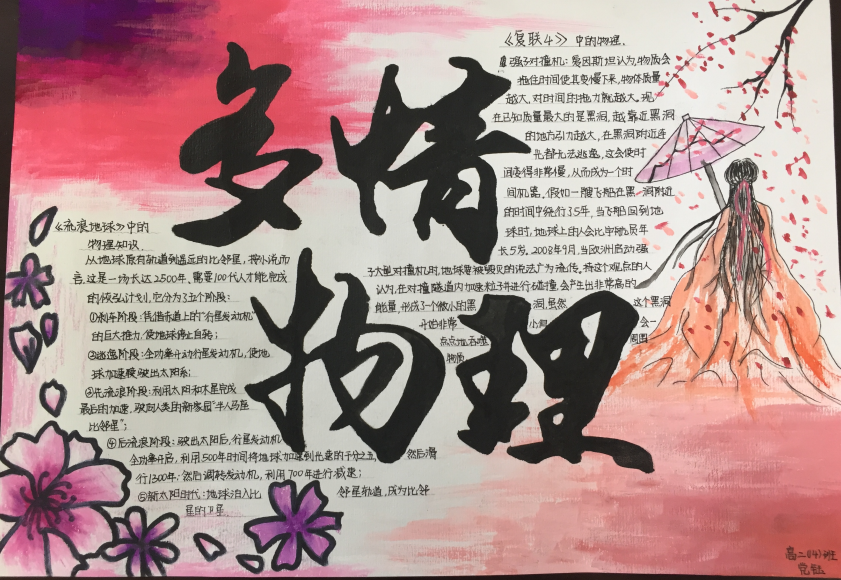 多情
物理
《复联4》中的物理.
强子对撞机：爱因斯坦认为,物质会
拖住时间使其变慢下来,物体质量
越大,对时间的拖力就越大,现
在已知质量最大的是黑洞,越靠近黑洞
的地方引力越大,在黑洞附近连
光都无法逃逸,这会使时
间变得非常慢,从而成为一个时
间机器.假如一艘飞船在黑洞附近
的时间中绕行3.5年,当飞船回到地
球时,地球上的人会比宇航员年
长5岁。2008年9月,当欧洲启动强
子大型对撞机时,地球要被毁灭的说法广为流传,持这个观点的人
认为,在对撞隧道内加速粒子并进行碰撞,会产生出非常高的
能量,形成了个微小的黑洞,虽然这个黑洞
开始非常小,会一
点点地吞噬周围
物质
《流浪地球》中的
物理知识
从地球原有轨道到遥远的比邻星,按小说而
言,这是一场长达2500年、需要100代人才能完成
的恢弘计划,它分为了五个阶段：
①刹车阶段：凭借赤道上的“行星发动机”
的巨大推力,使地球停止自转；
②逃逸阶段：全功率开动行星发动机,使地
球加速驶出太阳系；
③先流浪阶段：利用太阳和木星完成
最后的加速,驶向人类的新家园“半人马座
比邻星”；
④后流浪阶段：驶出太阳后,行星发动机
全功率开启,利用500年时间将地球加速到光速的千分之五,然后滑
行1300年,然后调转发动机,利用700年进行减速；
⑤新太阳时代：地球泊入比邻星轨道,成为比邻
星的卫星
高二(14)班